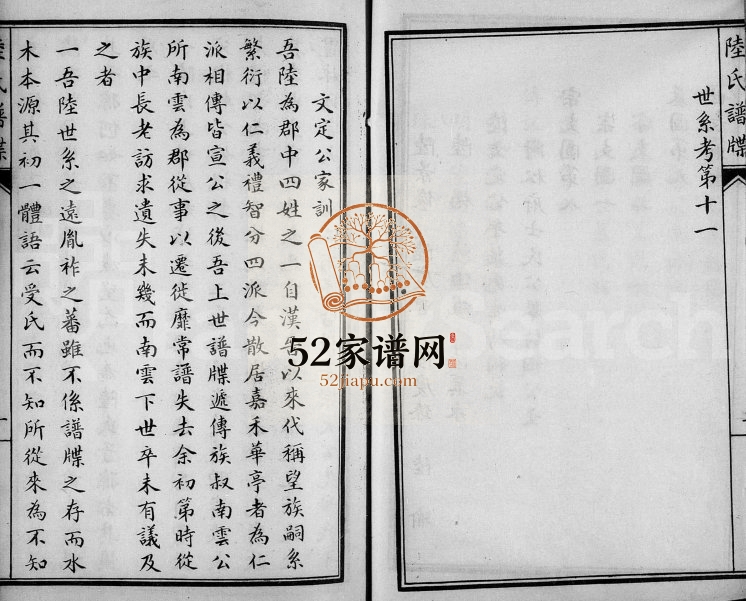 陸氏譜牒
世系考第十一
文定公家訓
吾陸為郡中四姓之一自漢
以來代稱望族嗣系
繁衍以仁義禮智分四派今散居嘉禾華亭者為仁
派相傳皆宣公之後吾上世譜牒遞傳族叔南雲公
所南雲為郡從事以遷徙靡常譜失去余初第時從
族中長老訪求遺失未幾而南雲下世卒未有議及
之者
一吾陸世系之遠胤祚之蕃雖不係譜牒之存而水
木本源其初一體語云受氏而不知所從來為不知
陸氏譜牒
52家谱网
52jiapu.com